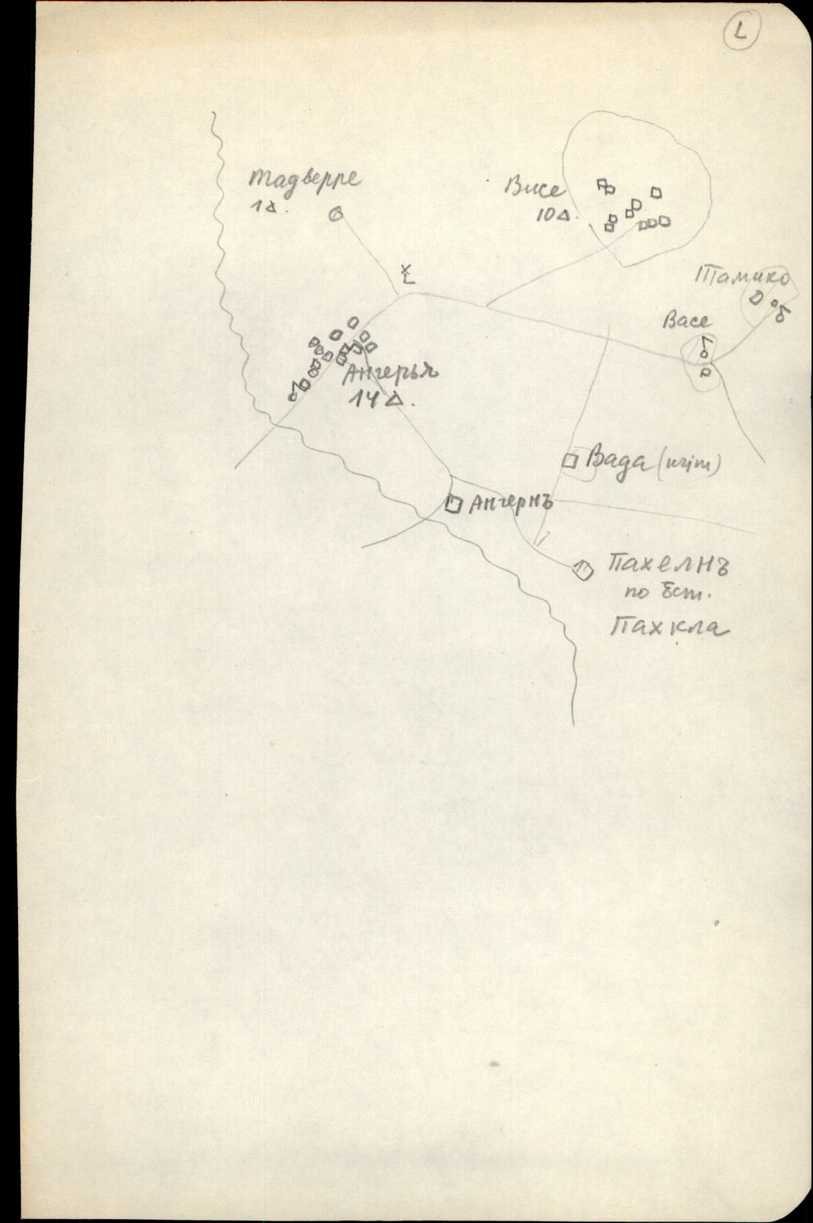 L
тадверре
1 Δ.
Висе
10 Δ.
Тамико
Васе
Ангерья
14 Δ.
Вада
Ангернъ
Пахелнъ
по Ест.
Пахкла